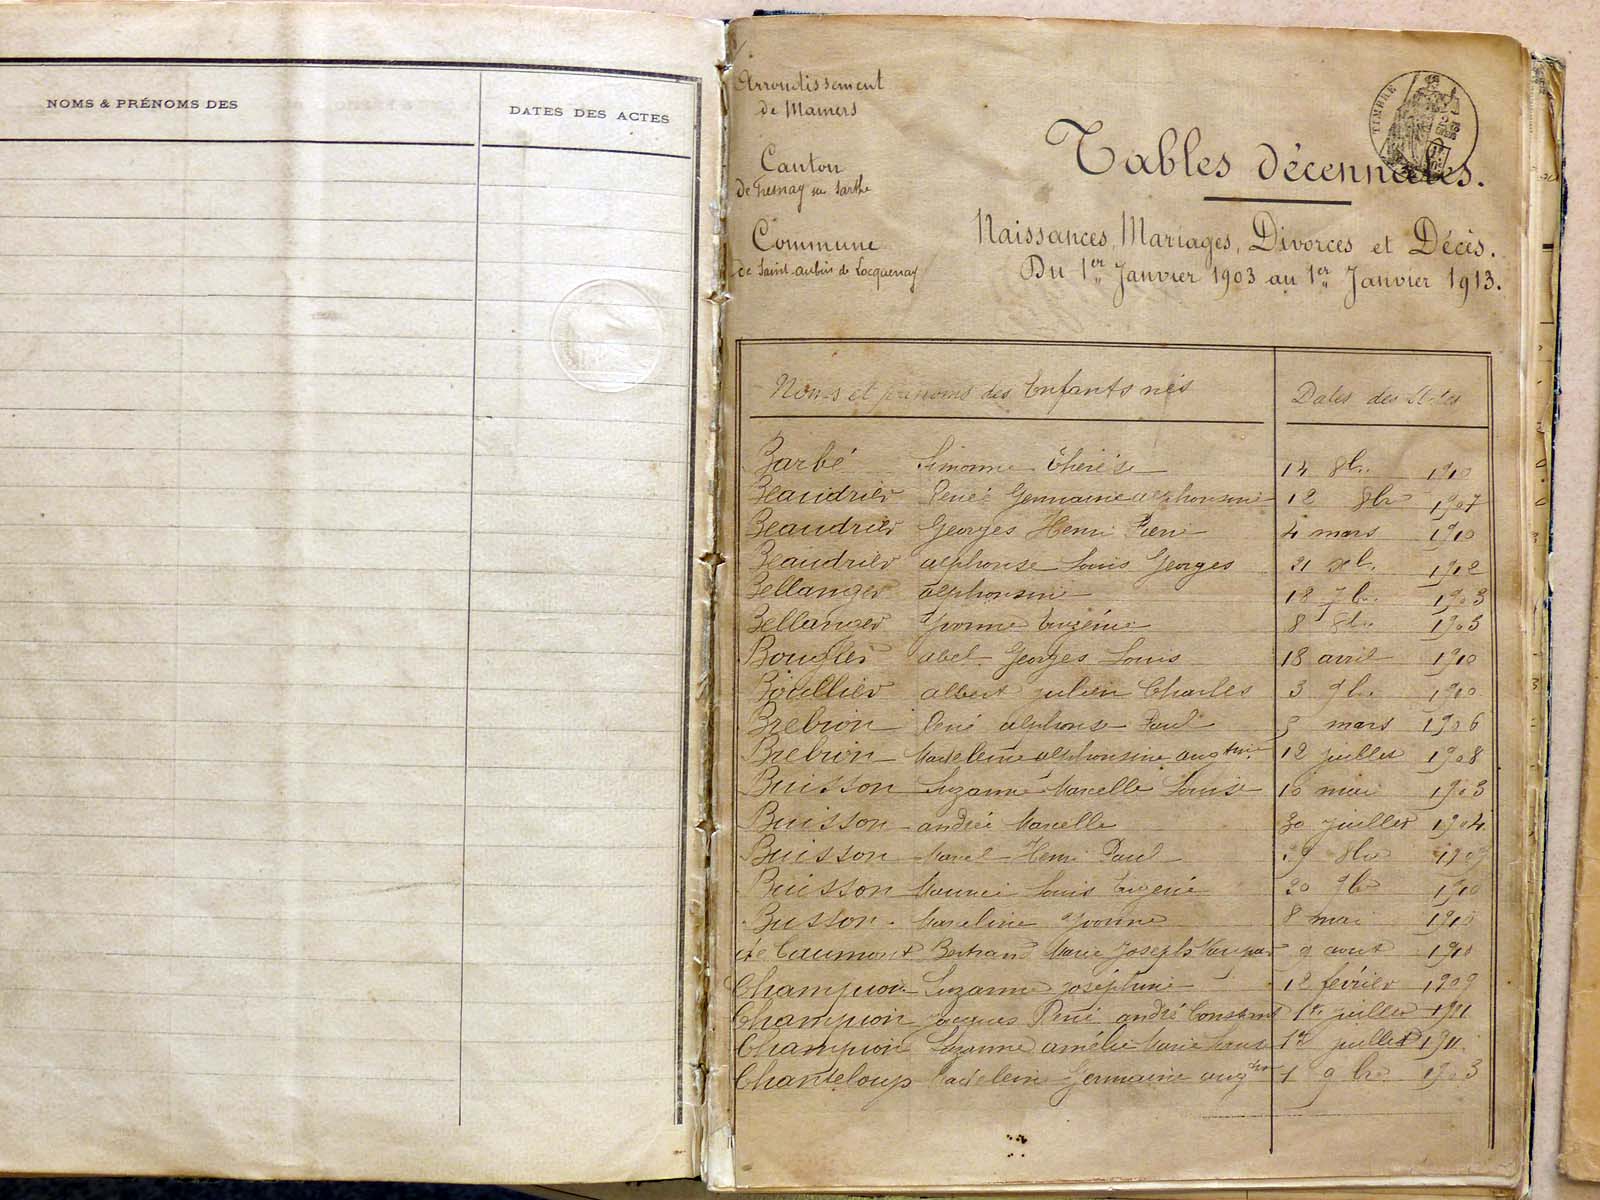 NOMS & PRÉNOMS DES
DATES DES ACTES
Arrondissement
de Mamers
Canton
de Fresnay sur Sarthe
Commune
de Saint-Aubin de Locquenay
TIMBRE
Tables décennales.
Naissances, Mariages, Divorces et Décès.
Du 1er Janvier 1903 au 1er Janvier 1913.
Noms et prénoms des Enfants nés
Dates des Actes
Barbé Simonne Thérèse 14 8bre 1910
Beaudrier Renée Germaine alphonsine 12 8bre 1907
Beaudrier Georges Henri Pierre 4 mars 1910
Beaudrier alphonse Louis Georges 21 1912
Bellanger alphonsine 18 7bre 1903
Bellanger Yvonne Eugénie 8 8bre 1905
Bouglier abel Georges Louis 18 avril 1910
Boullier albert julien Charles 3 9bre 1910
Brebion René alphonse Paul 5 mars 1906
Brebion Madeleine alphonsine augtine 12 juillet 1908
Buisson Suzanne Marcelle Louise 10 mai 1903
Buisson andrée Marcelle 30 juillet 1904
Buisson Marcel Henri Paul 19 8bre 1909
Buisson Maurice Louis Eugène 20 9bre 1910
Busson Marceline Yvonne 8 mai 1910
de Caumont Bertrand Marie Joseph 9 aout 1910
Champion Suzanne joséphine 12 février 1909
Champion jacques René andré Constant 1er juillet 1911
Champion Suzanne amélie Marie Louise 17 juillet 1911
Chanteloup Madeleine Germaine augtine 1 9bre 1903